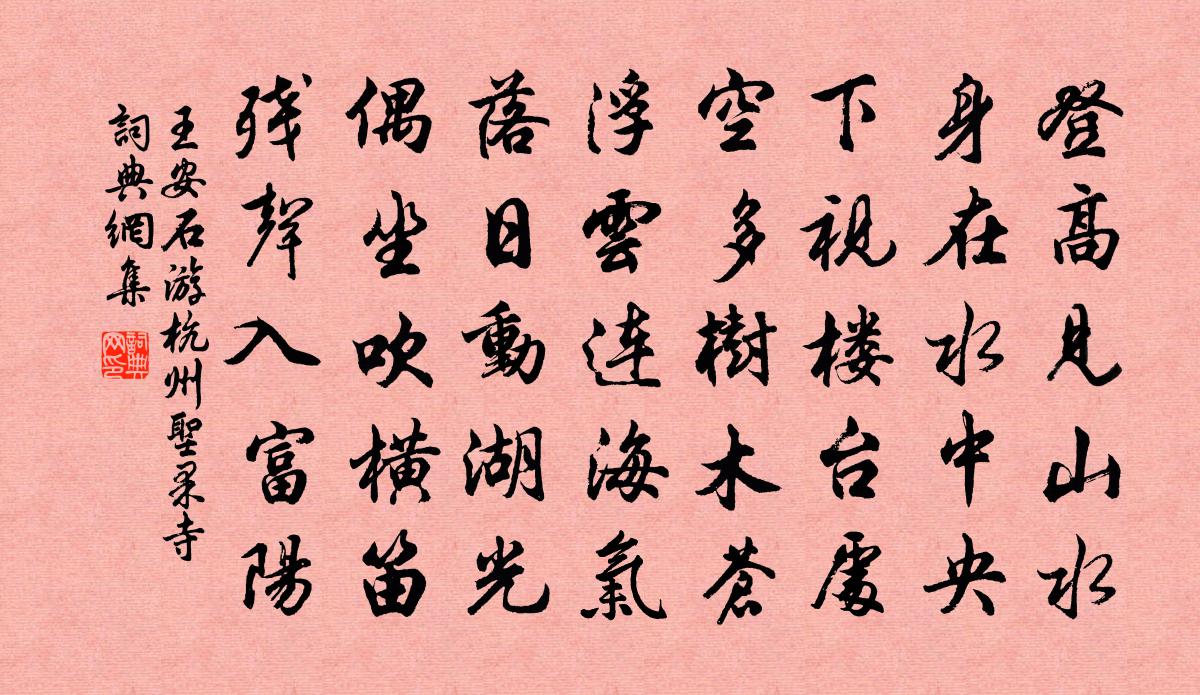 登高見山水
身在水中央
下視楼台處
空多樹木蒼
浮雲連海氣
落日動湖光
偶坐吹橫笛
残聲入富陽
王安石游杭州聖果寺
詞典網集
詞典网印